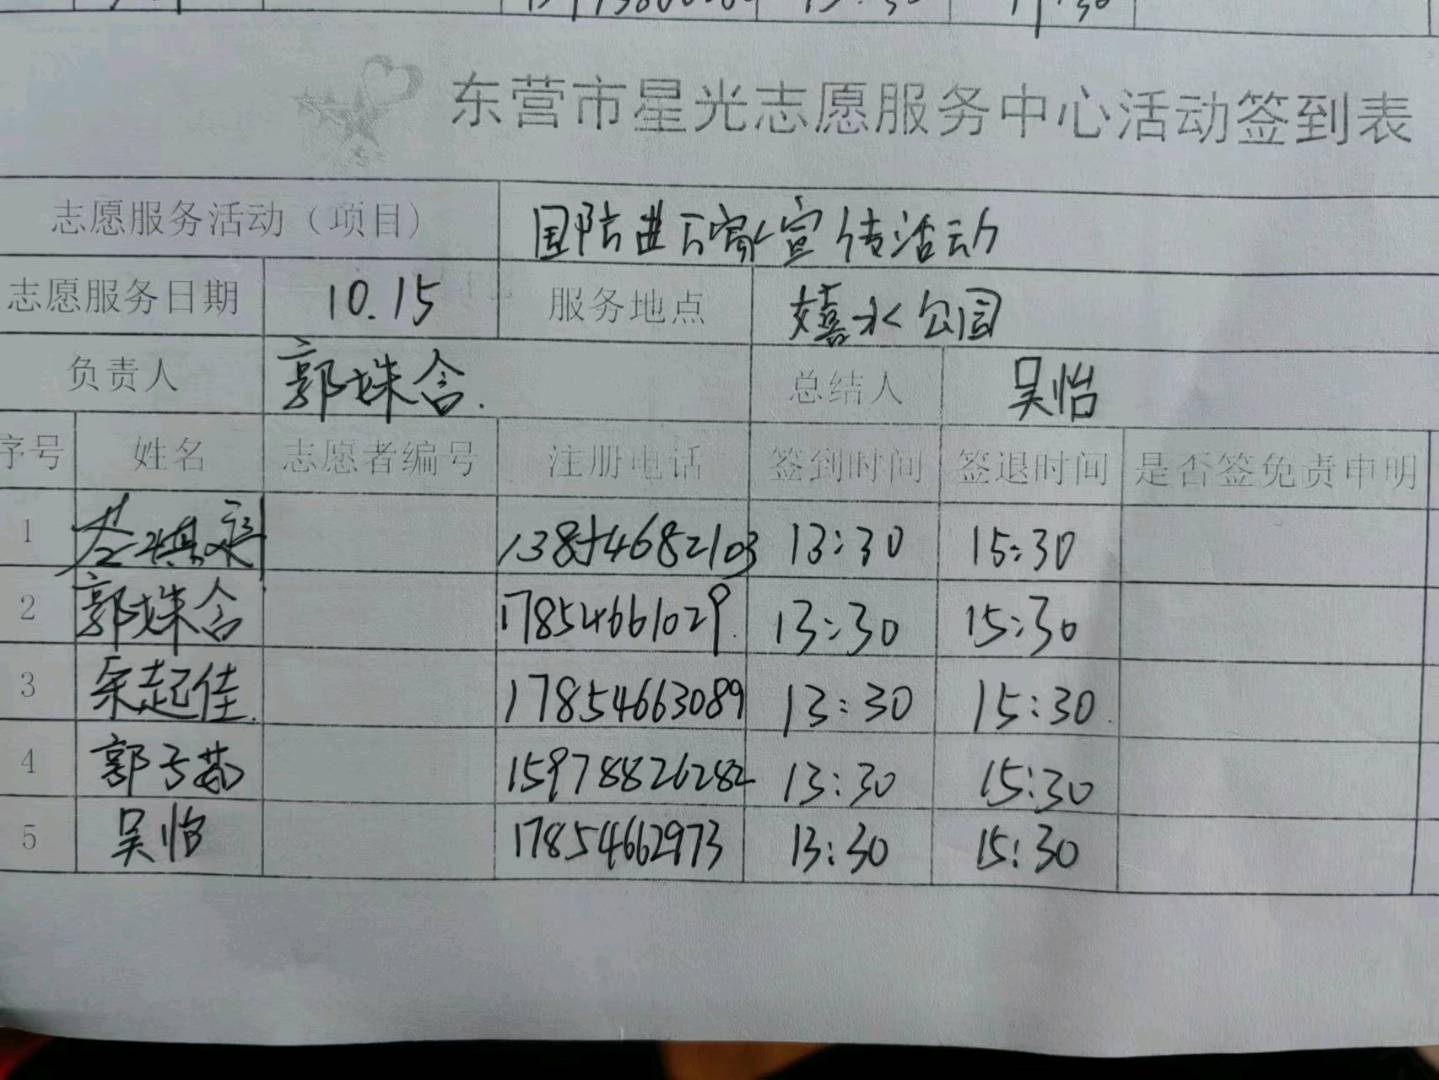 13:30
东营市星光志愿服务中心活动签到表
志愿服务活动（项目） 国防进万家宣传活动
志愿服务日期 10.15 服务地点 嬉水公园
负责人 郭姝含. 总结人 吴怡
序号 姓名 志愿者编号 注册电话 签到时间 签退时间 是否签免责申明
1 13854682103 13:30 15:30
2 郭姝含 17854661029. 13:30 15:30
3 起佳. 17854663089 13:30 15:30.
4 郭子茹 15978826282 13:30 15:30
5 吴怡 17854662973 13:30 15:30